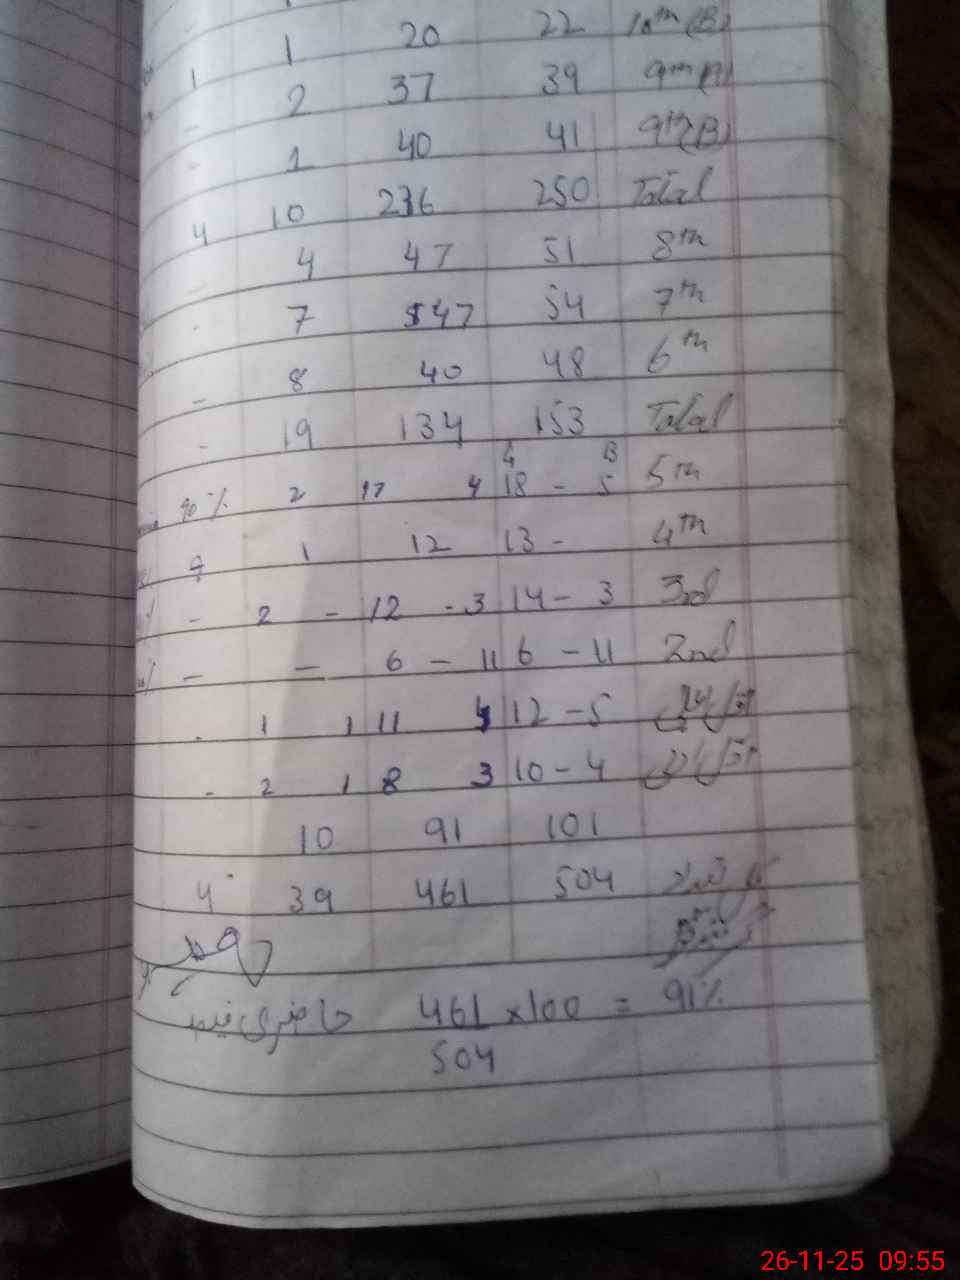 1 20 22 10th (B)
1 2 37 39 9th (A)
- 1 40 41 9th (B)
4 10 236 250 Total
- 4 47 51 8th
- 7 47 54 7th
- 8 40 48 6th
- 19 134 153 Total
G B
90 % 2 17 4 18 - 5 5th
1 12 13 - 4th
- 2 - 12 - 3 14 - 3 3rd
- - 6 - 11 6 - 11 2nd
- 1 1 11 4 12 - 5
- 2 1 8 3 10 - 4
10 91 101
4 39 461 504 کل تعداد
حاضری فیصد 461 × 100 = 91%
504
26-11-25 09:55